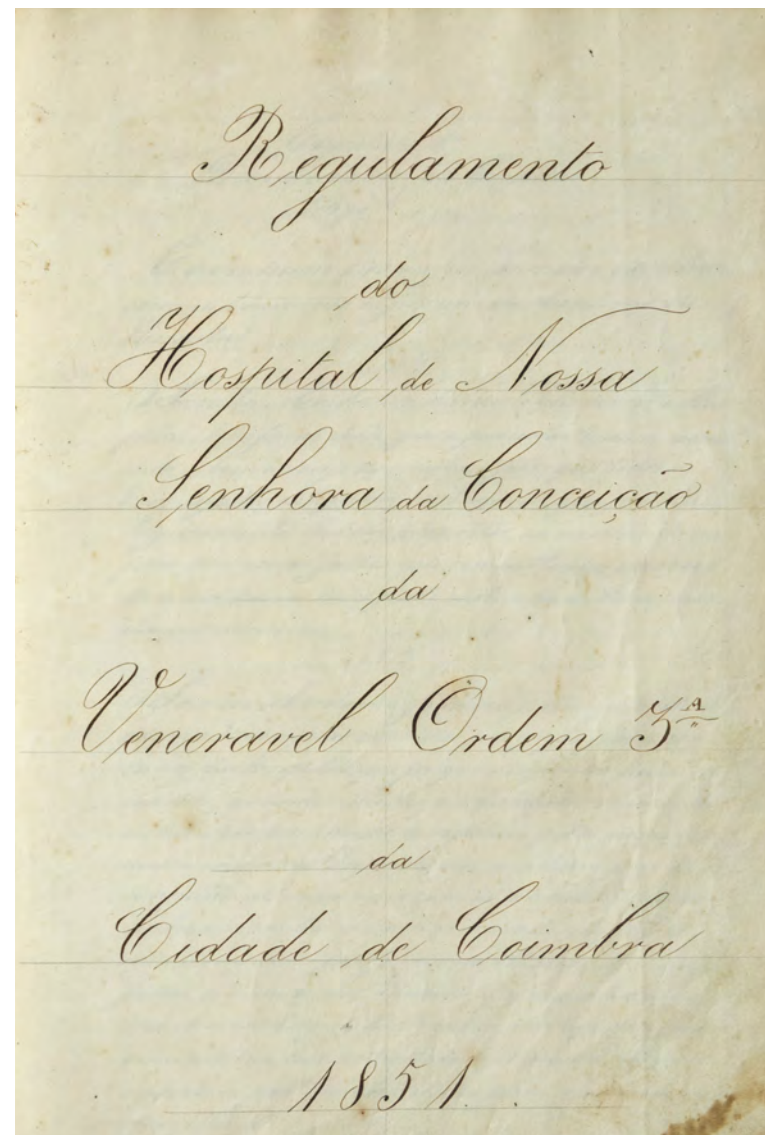 Regulamento
do
Hospital de Nossa
Senhora da Conceição
da
Veneravel Ordem 3ª
da
Cidade de Coimbra
1851.